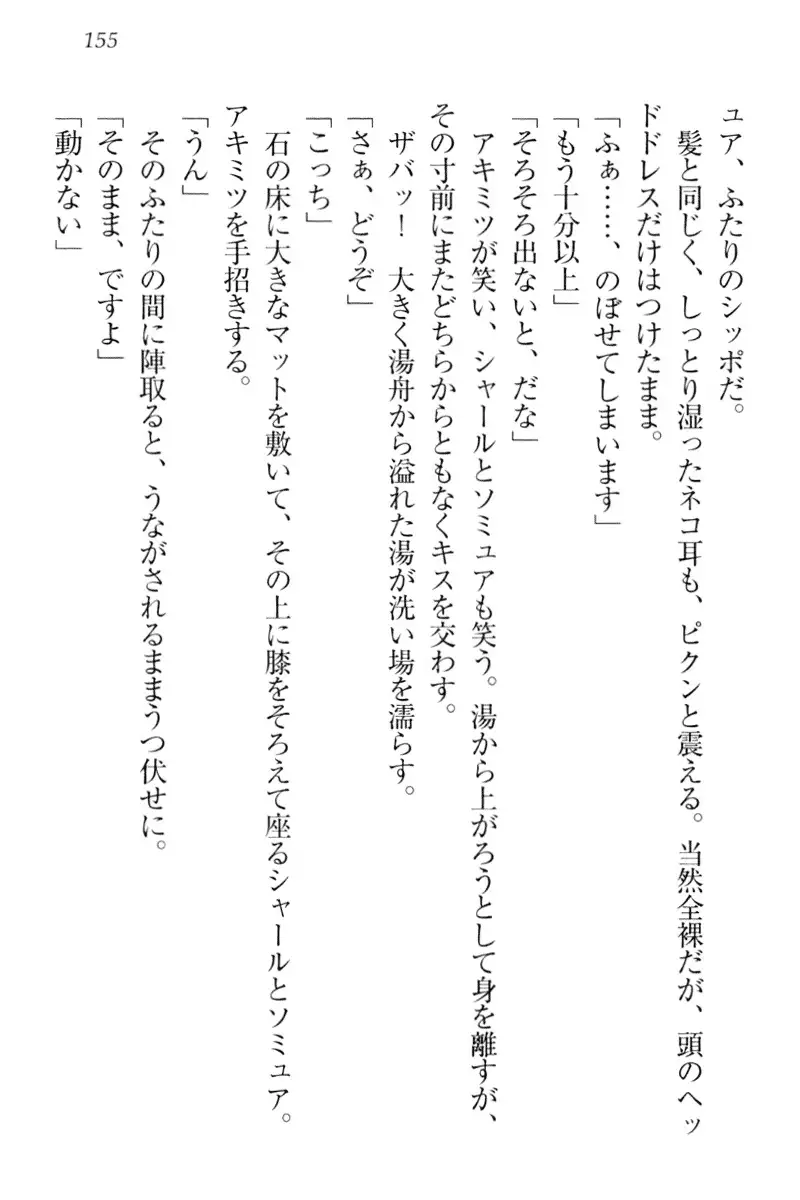 155
ュア、ふたりのシッポだ。
髪と同じく、しっとり湿ったネコ耳も、ピクンと震える。当然全裸だが、頭のヘッ
ドドレスだけはつけたまま。
「ふぁ……、のぼせてしまいます」
「もう十分以上」
「そろそろ出ないと、だな」
アキミツが笑い、シャールとソミュアも笑う。湯から上がろうとして身を離すが、
その寸前にまたどちらからともなくキスを交わす。
ザバッ！　大きく湯舟から溢れた湯が洗い場を濡らす。
「さぁ、どうぞ」
「こっち」
石の床に大きなマットを敷いて、その上に膝をそろえて座るシャールとソミュア。
アキミツを手招きする。
「うん」
そのふたりの間に陣取ると、うながされるままうつ伏せに。
「そのまま、ですよ」
「動かない」